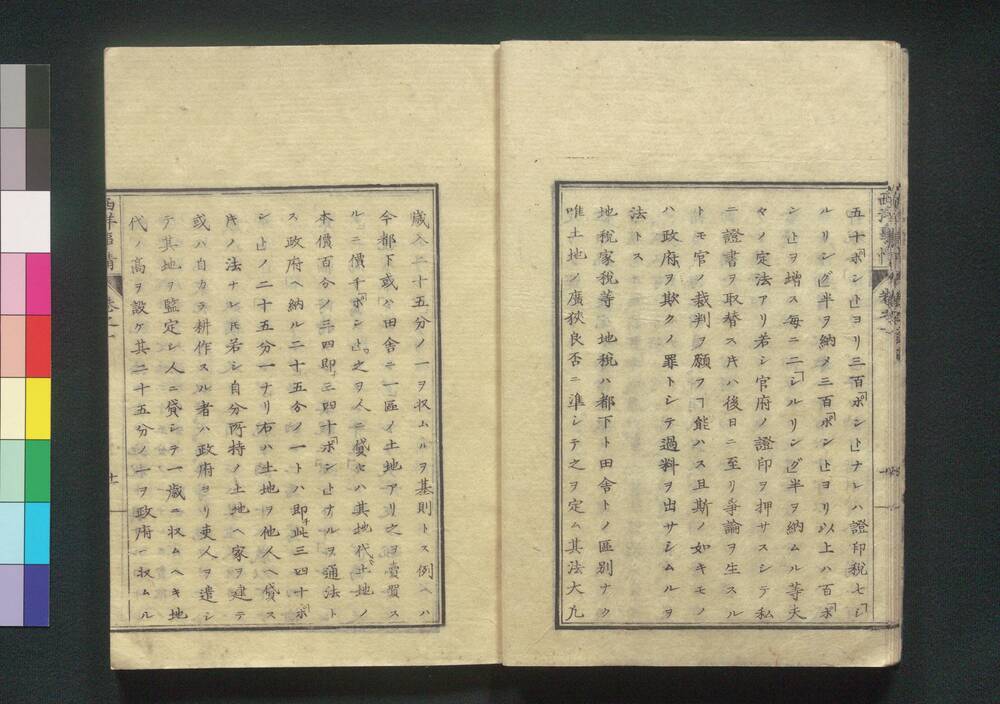 五十「ポンド」ヨリ三百「ポンド」ナレハ證印税七「シ
ルリング」半ヲ納メ三百「ポンド」ヨリ以上ハ百「ポ
ンド」ヲ増ス毎ニ二「シルリング」半ヲ納ムル等夫
々ノ定法アリ若シ官府ノ證印ヲ押サスシテ私
ニ證書ヲ取替ス片ハ後日ニ至リ爭論ヲ生スル
トモ官ノ裁判ヲ願フヿ能ハス且斯ノ如キモノ
ハ政府ヲ欺クノ罪トシテ過料ヲ出サシムルヲ
法トス
地税家税等　地税ハ都下ト田舎トノ區別ナク
唯土地ノ廣狹良否ニ準シテ之ヲ定ム其法大凡
歳入二十五分ノ一ヲ収ムルヲ基則トス例ヘハ
今都下或ハ田舎ニ一區ノ土地アリ之ヲ賣買ス
ルニ價千「ポンド」之ヲ人ニ貸セハ其地代土地ノ
本價百分ノ三四即三四十「ポンド」ナルヲ通法ト
ス政府ヘ納ル二十五分ノ一トハ即此三四十「ポ
ンド」ノ二十五分一ナリ右ハ土地ヲ他人ヘ貸ス
片ノ法ナレ𪜈若シ自分所持ノ土地ヘ家ヲ建テ
或ハ自カラ耕作スル者ハ政府ヨリ吏人ヲ遣シ
テ其地ヲ監定シ人ニ貸シテ一歳ニ収ムヘキ地
代ノ高ヲ設ケ其二十五分ノ一ヲ政府ヘ収ムル
西洋事情
卷之一
十一